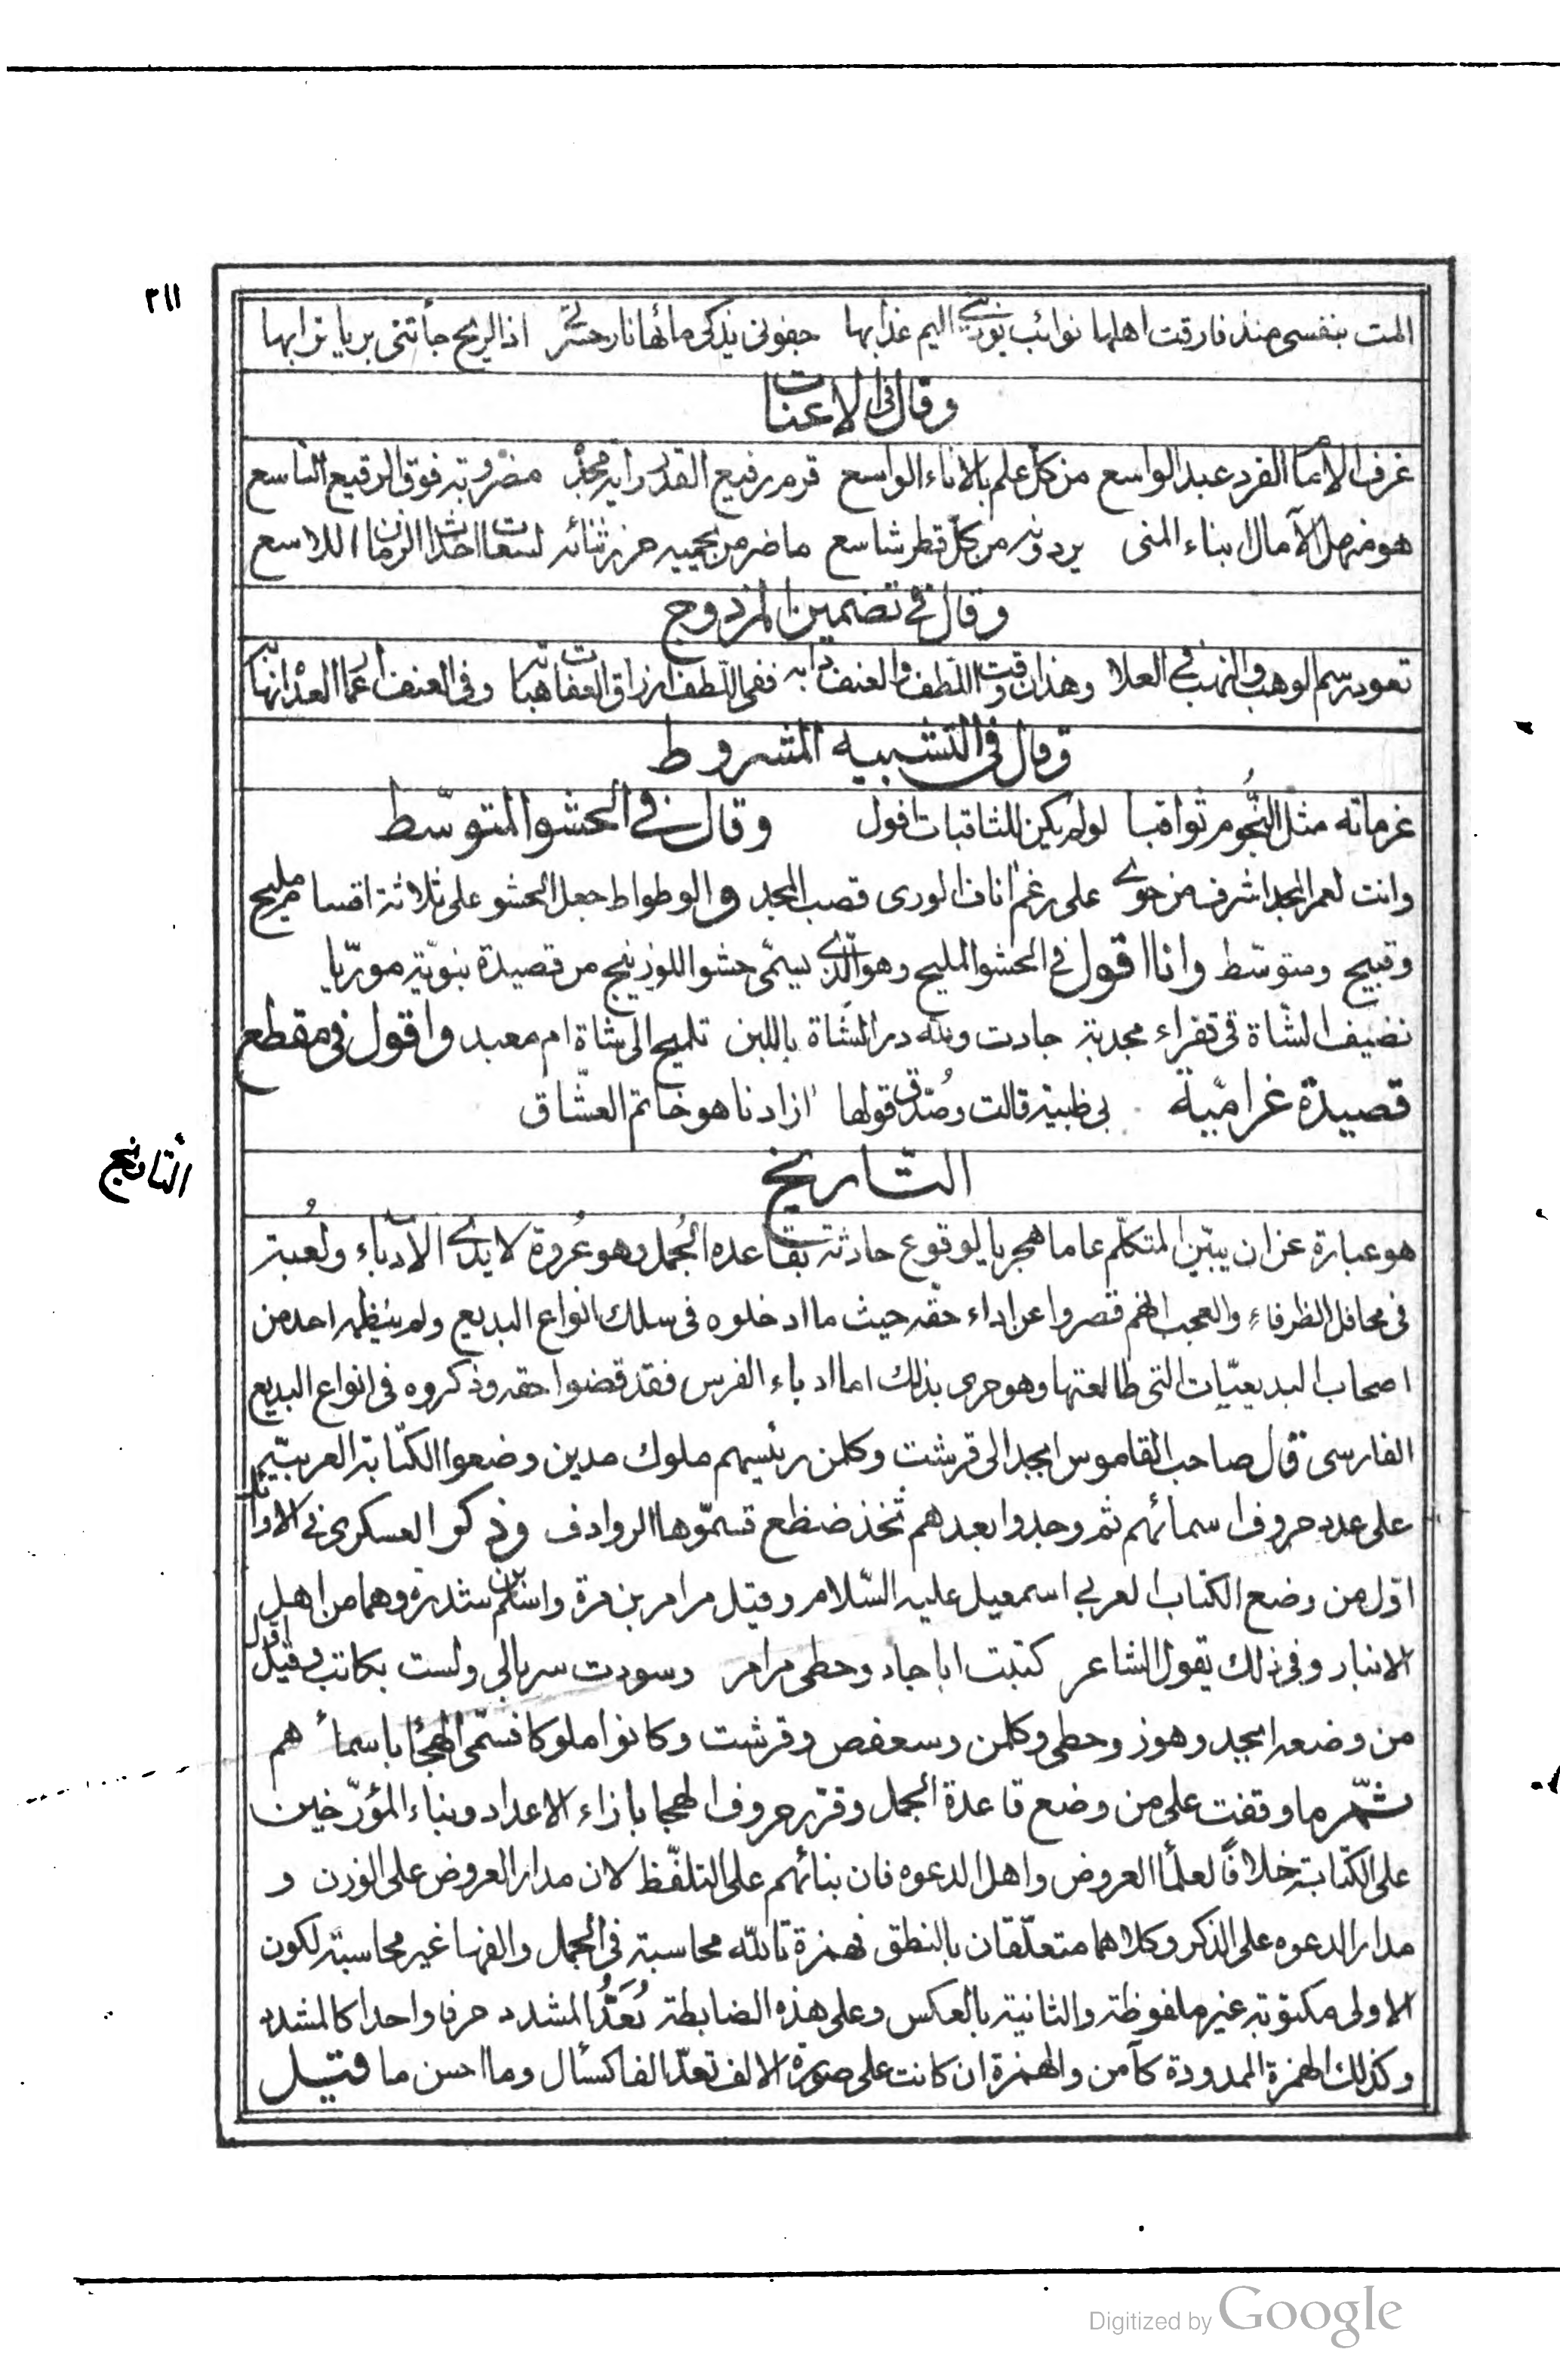 ٢١١
المت بنفسى منذ فارقت اهلها نوائب يوذينى اليم عذابها جفونى يذكى مائها نار حسرتى اذا الريح جأتنى بريا ترابها
وقال فى الاعنات
غرف الامام الفرد عبد الواسع من كل علم بالاناء الواسع قرم رفيع القدر راية مجده مضروبة فوق الرقيع التاسع
هو منهل الآمال ابناء المنى يردونه من كل قطر شاسع ماضر من يحميه حرز ثنائه لسعات احداث الزمان اللاسع
وقال فى تضمين المزدوج
تعود رسم الوهب والنهب فى العلا وهذان وقت اللطف والعنف دابه ففى اللطف ارزاق العفاة هباته وفى العنف اعمار العداة نهابه
وقال فى التشبيه المشروط
عزماته مثل النُّجوم ثواقبا لو لم يكن للثاقبات افول وقال فى الحشو المتوسّط
وانت لعمر المجد اشرف من حوى على رغم اناف الورى قصب المجد والوطواط جعل الحشو على ثلاثة اقسام مليح
وقبيح ومتوسّط وانا اقول فى الحشو المليح وهو الّذى يسمّى حشو اللوزينج من قصيدة نبويّة مورّيا
نضيف الشاة فى قفراء مجدبة جادت ولله در الشاة باللبن تلميح الى شاة ام معبد واقول فى مقطع
قصيدة غراميّة بى ظبية قالت وصُدّق قولها ازادنا هو خاتم العشّاق
التّاريخ
التّاريخ
هو عبارة عن ان يبيّن المتكلّم عاما هجريا لوقوع حادثة بقاعدة الجُمل وهو عُروة لايدى الادباء ولُعبة
فى محافل الظرفاء والعجب انهم قصروا عن اداء حقّه حيث ما ادخلوه فى سلك انواع البديع ولم ينظمه احد من
اصحاب البديعيّات التى طالعتها وهو حرى بذلك اما ادباء الفرس فقد قضوا حقه وذكروه فى انواع البديع
الفارسى قال صاحب القاموس ابجد الى قرشت وكلمن رئيسهم ملوك مدين وضعوا الكتابة العربيّة
على عدد حروف اسمائهم ثم وجدوا بعدهم ثخذ ضظغ فسمّوها الروادف وذكر العسكرى فى الاوائل
اوّل من وضع الكتاب العربى اسمعيل عليه السّلام وقيل مرامر بن مرة واسلم بن سدرة وهما من اهل
الانبار وفى ذلك يقول الشاعر كتبت اباجاد وحطى مرامر وسودت سربالى ولست بكاتب وقيل اول
من وضعه ابجد وهوز وحطى وكلمن وسعفص وقرشت وكانوا ملوكا فسمّى الهجا باسمائهم
ثمّ ما وقفت على من وضع قاعدة الجمل وقرّر حروف الهجا بازاء الاعداد وبناء المؤرّخين
على الكتابة خلافًا لعلمأ العروض واهل الدعوه فان بنائهم على التلفّظ لان مدار العروض على الوزن و
مدار الدعوه على الذكر وكلاهما متعلّقان بالنطق فهمزة تالله محاسبة فى الجمل والفها غير محاسبة لكون
الاولى مكتوبة غير ملفوظة والثانية بالعكس وعلى هذه الضابطة يُعَدُّ المشدد حرفا واحدا كالمشدد
وكذلك الهمزة الممدودة كآمن والهمزة ان كانت على صورة الالف تعدّ الفا كسئال وما احسن ما قيل
Digitized by Google